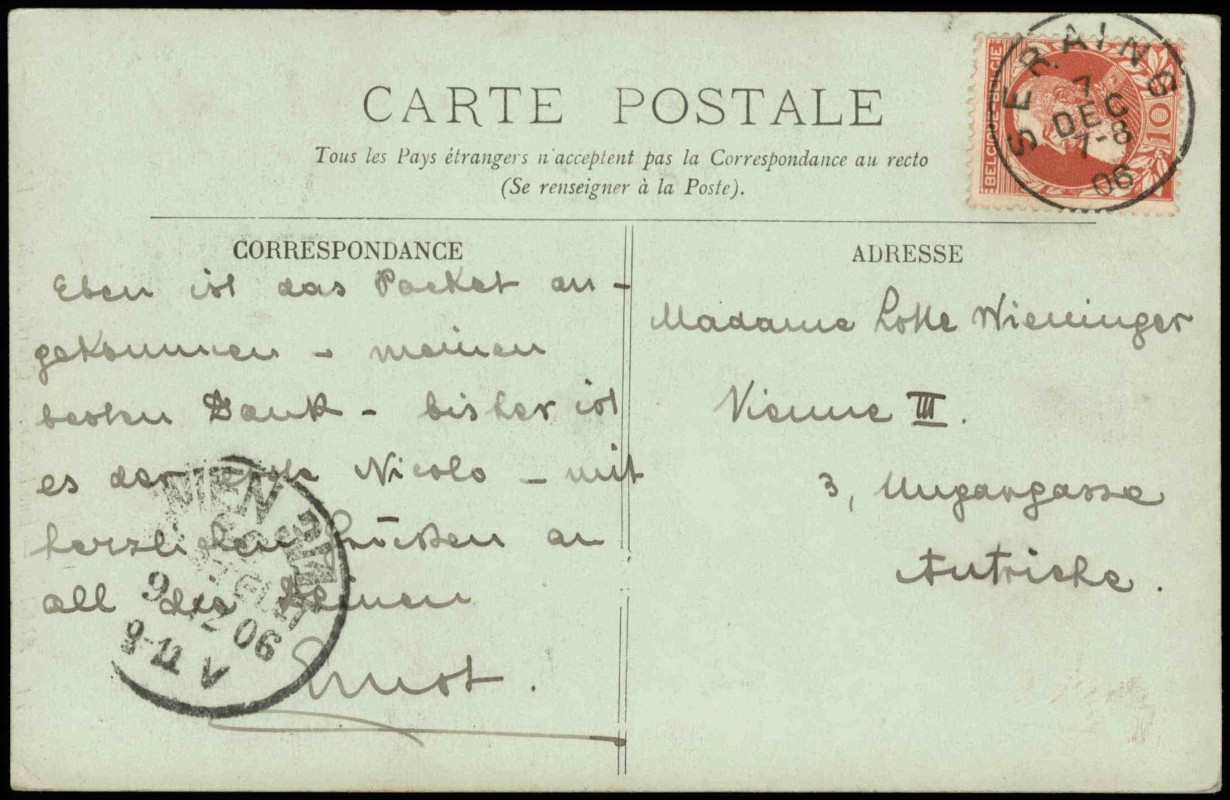 CARTE POSTALE
Tous les Pays étrangers n'acceptent pas la Correspondance au recto
(Se renseigner à la Poste).
BELGIE BELGIQUE
10
SERAING
7
DEC
7-8
06
CORRESPONDANCE
Eben ist das Packet an-
gekommen - meinen
besten Dank - bisher ist
es der erste Nicolo - mit
herzlichen Grüssen an
all die Deinen
Ernst.
WIEN 3/
9 12 06
9-11 V
ADRESSE
Madame Lotte Wieninger
Vienne III.
3, Ungargasse
Autriche.